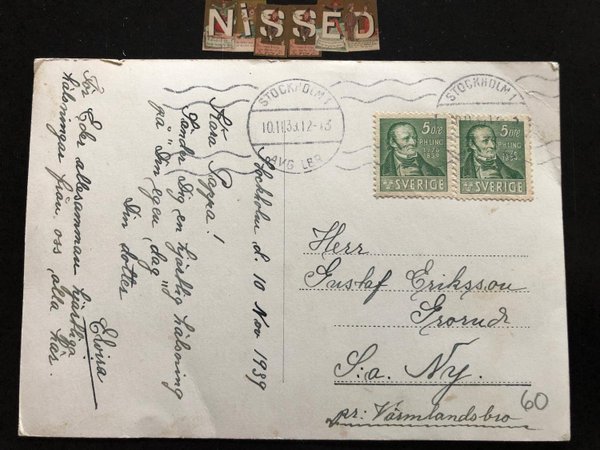 NiSSED
STOCKHOLM 1
10.11.39.12-13
AVG LBR
STOCKHOLM 1
5 ÖRE
P.H.LING
1776
1839
SVERIGE
5 ÖRE
P.H.LING
1776
1839
SVERIGE
Stockholm d. 10 Nov 1939
Kära Pappa!
Sänder Dig en hjärtlig hälsning
på "Din egen dag"
Din dotter
Elvira
För Eder allesamman hjärtliga
hälsningar från oss alla här.
Herr
Gustaf Eriksson
Grorud
S:a. Ny.
pr: Värmlandsbro
60